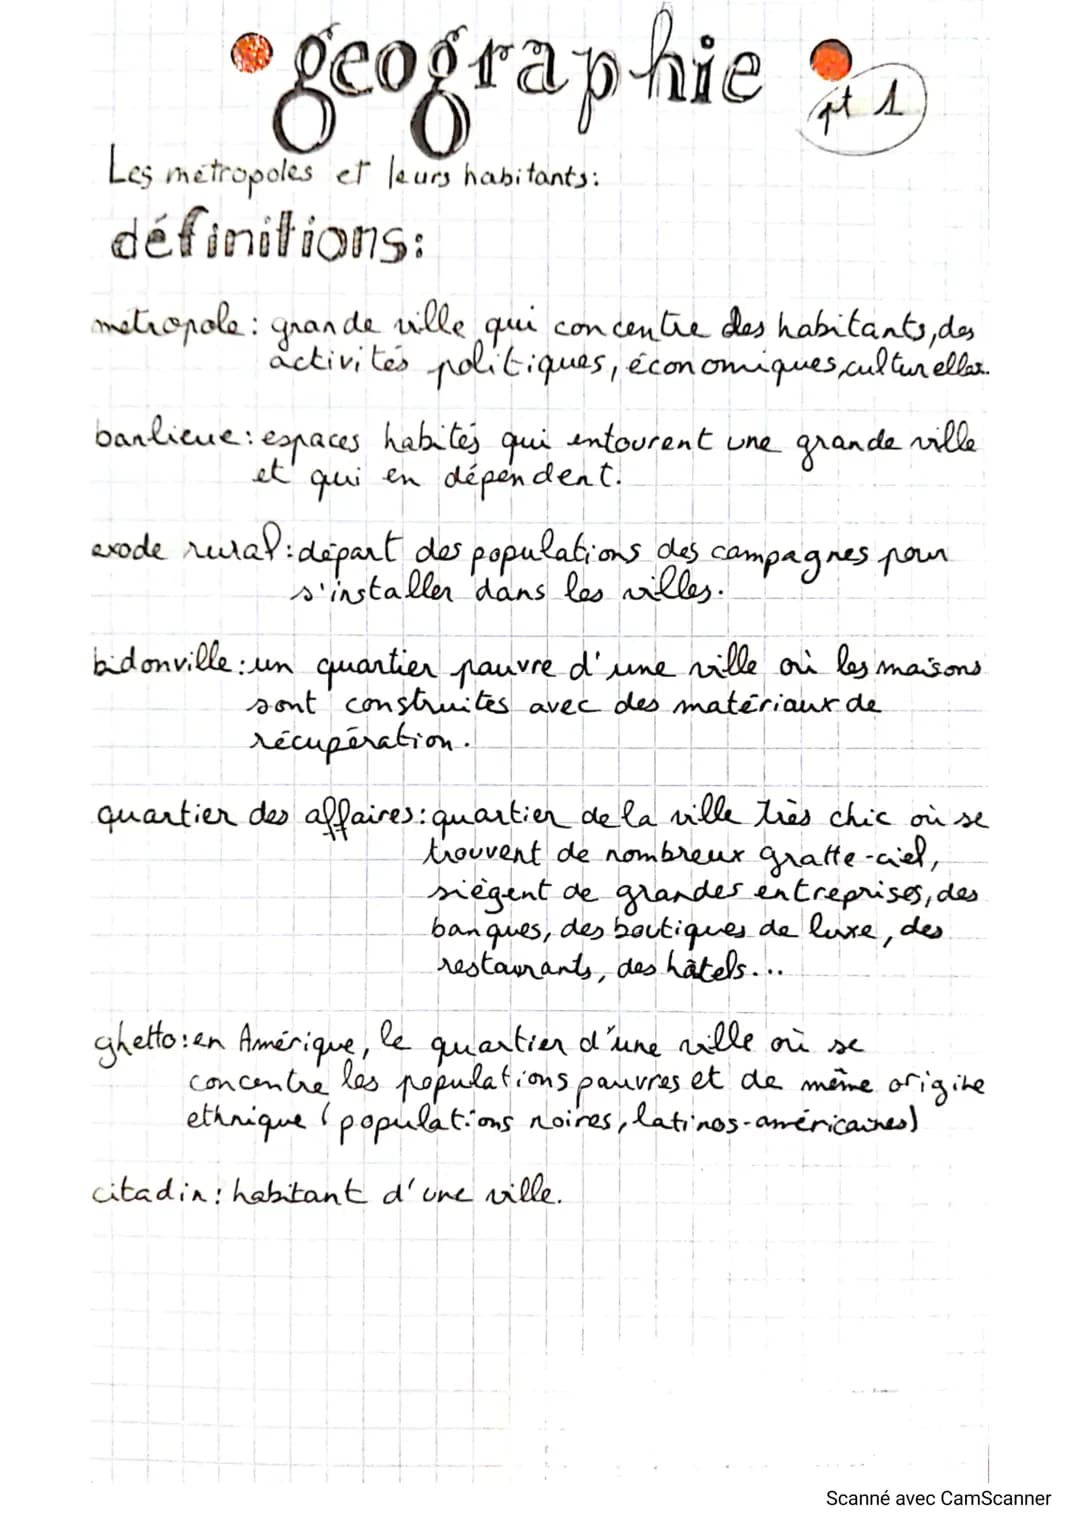 geographie
pt 1
Les métropoles et leurs habitants:
définitions:
métropole: grande ville qui concentre des habitants, des
activités politiques, économiques, culturelles.
banlieue: espaces habités qui entourent une grande ville
et qui en dépendent.
exode rural: départ des populations des campagnes pour
s'installer dans les villes.
bidonville: un quartier pauvre d'une ville où les maisons
sont construites avec des matériaux de
récupération.
quartier des affaires: quartier de la ville très chic où se
trouvent de nombreux gratte-ciel,
siègent de grandes entreprises, des
banques, des boutiques de luxe, des
restaurants, des hôtels...
ghetto: en Amérique, le quartier d'une ville où se
concentre les populations pauvres et de même origine
ethnique (populations noires, latinos-américaines)
citadin: habitant d'une ville.
Scanné avec CamScanner